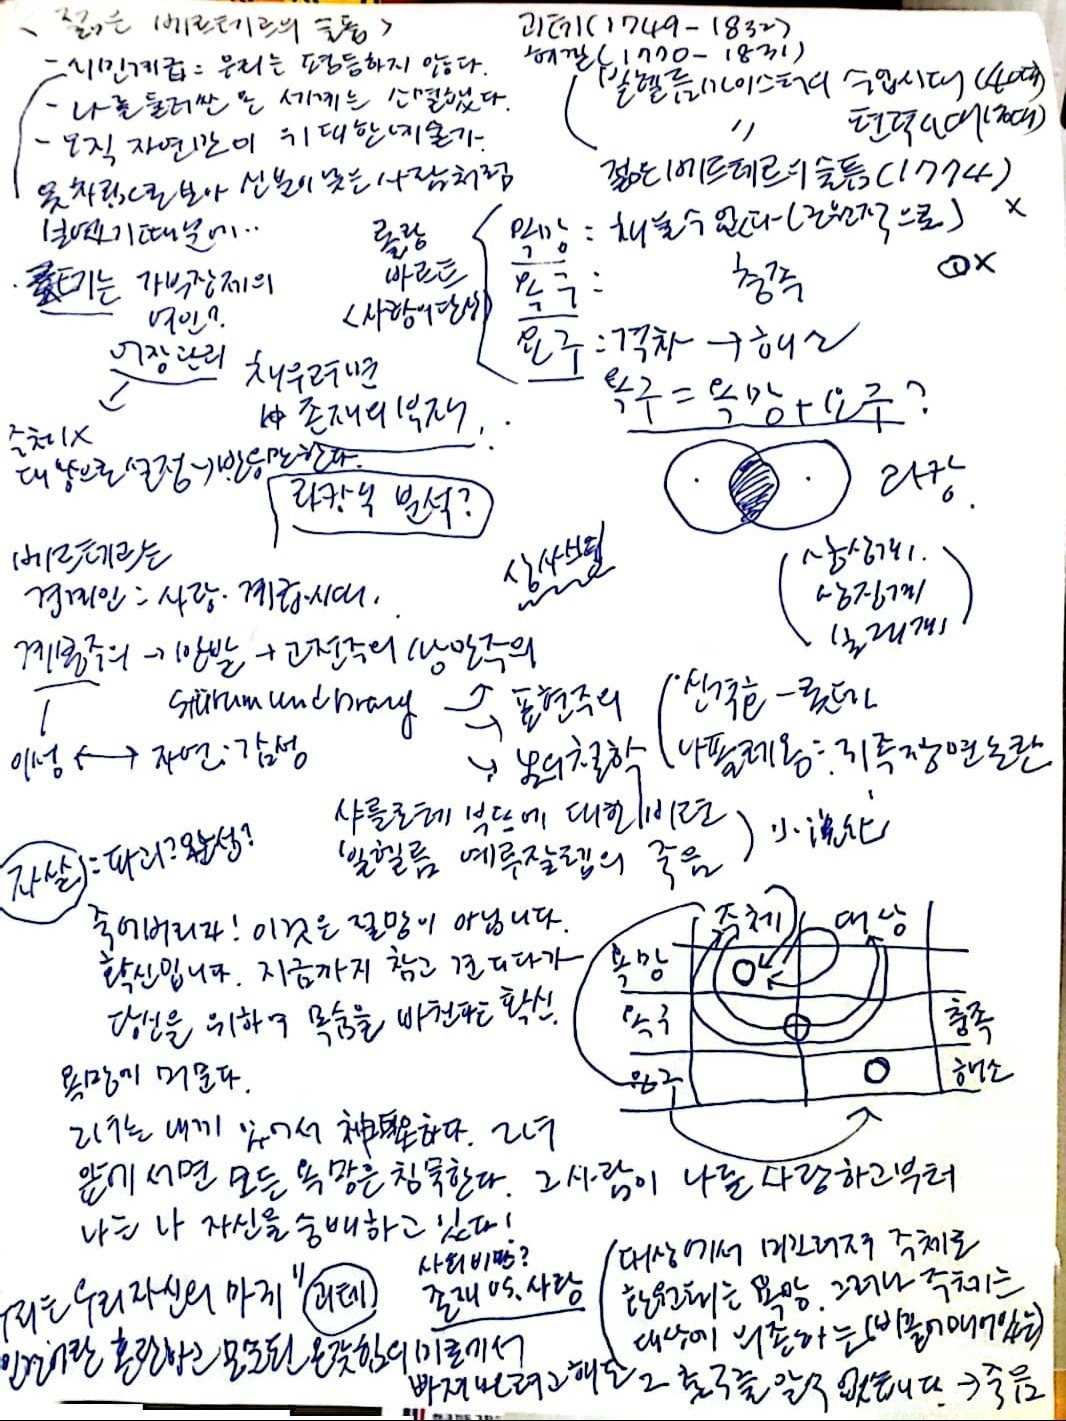 <젊은 베르테르의 슬픔>
- 시민계급: 우리는 평등하지 않다.
- 나를 둘러싼 온 세계는 소멸했다.
- 오직 자연만이 위대한 예술가.
옷차림으로 보아 신분이 낮은 사람처럼
보였기 때문에..
는 가부장제의
여인?
어장관리
채우려면
존재의 부재.
주체 X
대상으로 설정→반응만 한다.
라캉식 분석?
괴테(1749-1832)
헤겔(1770-1831)
빌헬름 마이스터의 수업시대(40대)
〃 편력시대(70대)
젊은 베르테르의 슬픔(1774)
롤랑
바르트
<사랑의 단상>
욕망: 채울 수 없다(근원적으로) X
욕구: 충족 X
요구: 격차 → 해소
욕구 = 욕망 + 요구?
라캉
상상계
상징계
실재계
베르테르는
경계인: 사랑·계급·시대.
상사병
계몽주의 → 반발 → 고전주의 낭만주의
Sturm und Drang → 표현주의
→ 남의 철학
이성 ↔ 자연·감성
신격호 - 롯데
나폴레옹:
샤를로테 부프에 대한 비련
빌헬름 예루잘렘의 죽음
자살 = 파괴? 완성?
죽어버리자! 이것은 절망이 아닙니다.
확신입니다. 지금까지 참고 견디다가
당신을 위하여 목숨을 바친다는 확신.
욕망이 머문다.
그녀는 내게 있어서 神聖하다. 그녀
앞에 서면 모든 욕망은 침묵한다. 그 사람이 나를 사랑하고부터
나는 나 자신을 숭배하고 있다!
주체 대상
욕망
욕구 충족
요구 해소
우리는 우리 자신의 마귀" 괴테
존재 vs. 사랑
대상에서 미끄러져 주체로
환원되는 욕망. 그러나 주체는
대상에 의존하는
인간이란 혼란하고 모순된 온갖 힘의 미로에서
빠져나오려고 해도 그 출구를 알 수 없습니다. → 죽음